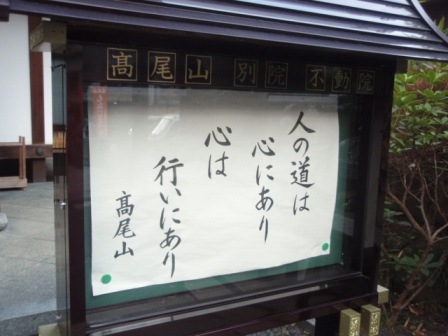 髙尾山 別院 不動院
人の道は
心にあり
心は
行いにあり
髙尾山